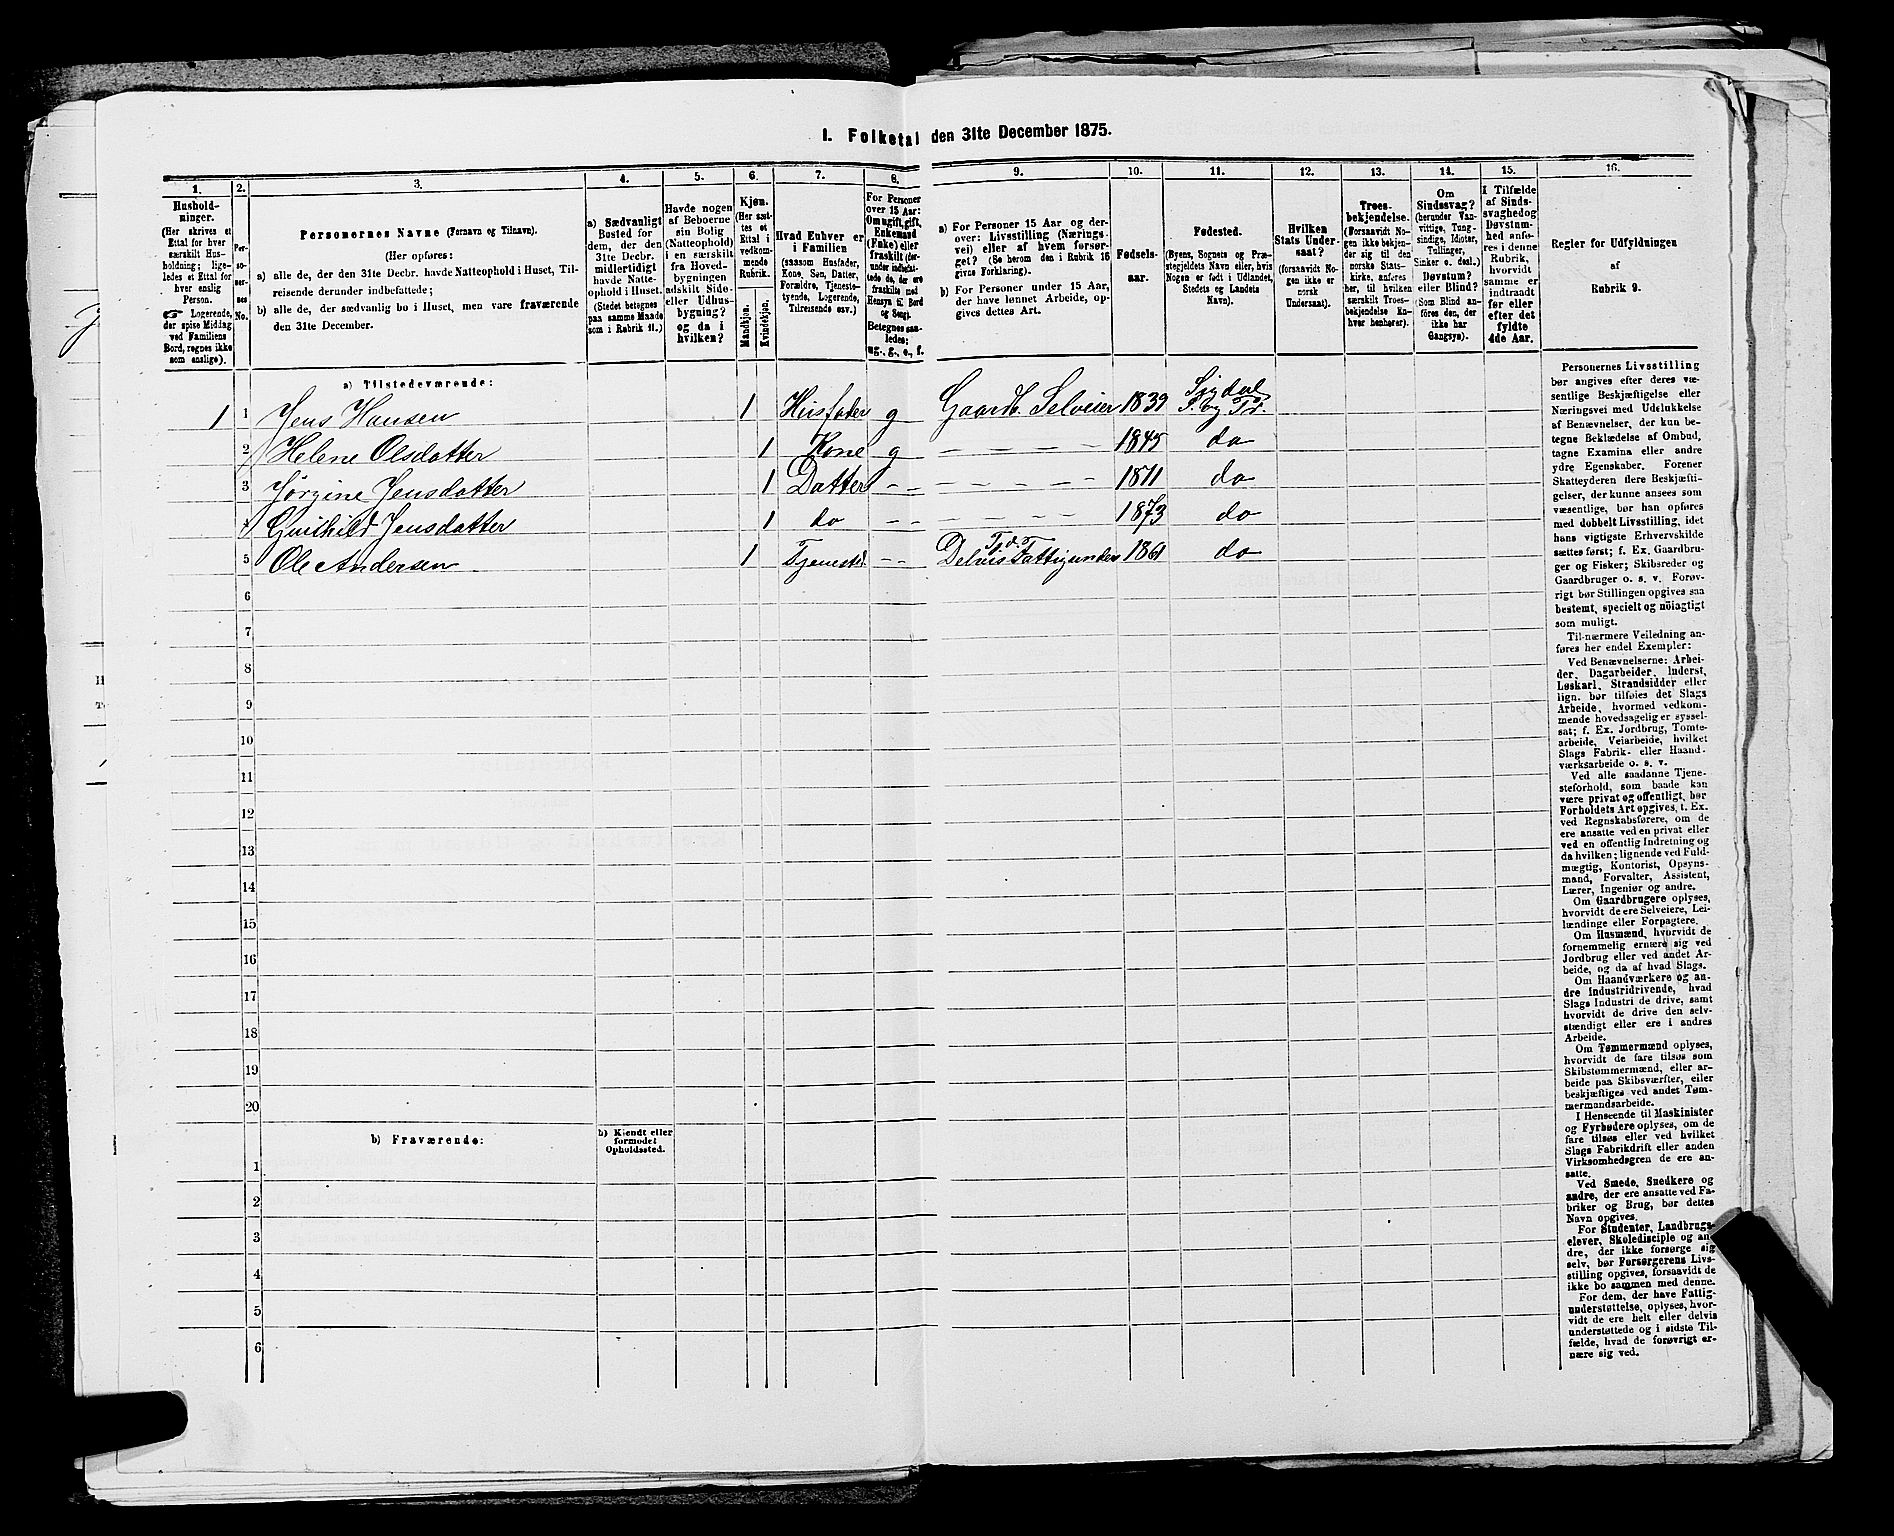 I. Folketal den 31te December 1875.
1.
Hushold-
ninger.
(Her skrives et
Ettal for hver
særskilt Hus-
holdning; lige-
ledes et Ettal for
hver enslig
Person.
Logerende,
der spise Middag
ved Familiens
Bord, regnes ikke
som enslige).
2.
Per-
so-
ner-
nes
No.
3.
Personernes Navne (Fornavn og Tilnavn).
(Her opføres:
a) alle de, der den 31te Decbr. havde Natteophold i Huset, Til-
reisende derunder indbefattede;
b) alle de, der sædvanlig bo i Huset, men vare fraværende
den 31te December.
4.
a) Sædvanligt
Bosted for
dem, der den
31te Decbr.
midlertidigt
havde Natte-
ophold i Huset.
(Stedet betegnes
paa samme Maade
som i Rubrik 11.)
5.
Havde nogen
af Beboerne
sin Bolig
(Natteophold)
i en særskilt
fra Hoved-
bygningen
adskilt Side-
eller Udhus-
bygning?
og da i
hvilken?
6.
Kjøn.
(Her sæt-
tes et
Ettal i
vedkom-
mende
Rubrik.
Mandkjøn.
Kvindekjøn.
7.
Hvad Enhver er
i Familien
(saasom Husfader,
Kone, Søn, Datter,
Forældre, Tjeneste-
tyende, Logerende,
Tilreisende osv.)
8.
For Personer
over 15 Aar:
Om ugift, gift,
Enkemand
(Enke) eller
fraskilt (der-
under indbefat-
tede de, der ere
fraskilte med
Hensyn til Bord
og Seng).
Betegnes saa-
ledes:
ug., g., e., f.
9.
a) For Personer 15 Aar og der-
over: Livsstilling (Nærings-
vei) eller af hvem forsør-
get? (Se herom den i Rubrik 16
givne Forklaring).
b) For Personer under 15 Aar,
der have lønnet Arbeide, op-
gives dettes Art.
10.
Fødsels-
aar.
11.
Fødested.
(Byens, Sognets og Præ-
stegjeldets Navn eller, hvis
Nogen er født i Udlandet,
Stedets og Landets
Navn).
12.
Hvilken
Stats Under-
saat?
(forsaavidt No-
gen ikke er
norsk
Undersaat).
13.
Troes-
bekjendelse.
(Forsaavidt No-
gen ikke bekjen-
der sig til den
norske Stats-
kirke, anføres
her, til hvilken
særskilt Troes-
bekjendelse En-
hver henhører).
14.
Om
Sindssvag?
(herunder Van-
vittige, Tung-
sindige, Idioter,
Tullinger,
Sinker o. desl.)
Døvstum?
eller Blind?
(Som Blind an-
føres den, der
ikke har
Gangsyn).
15.
I Tilfælde
af Sinds-
svaghed og
Døvstum-
hed anfø-
res i denne
Rubrik,
hvorvidt
samme er
indtraadt
før eller
efter det
fyldte
4de Aar.
16.
Regler for Udfyldningen
af
Rubrik 9.
a) Tilstedeværende:
1 1 Jens Hansen 1 Husfader g Gaardb. Selveier 1839 Sigdal S. og Pd.
2 Helene Olsdatter 1 Kone g — — — — — 1845 do
3 Jørgine Jensdatter 1 Datter — — — — — — — 1871 do
4 Gunhild Jensdatter 1 do — — — — — — — 1873 do
5 Ole Andersen 1 — — 1861 do
6
7
8
9
10
11
12
13
14
15
16
17
18
19
20
b) Fraværende:
b) Kjendt eller
formodet
Opholdssted.
1
2
3
4
5
6
Personernes Livsstilling
bør angives efter deres væ-
sentlige Beskjæftigelse eller
Næringsvei med Udelukkelse
af Benævnelser, der kun be-
tegne Beklædelse af Ombud,
tagne Examina eller andre
ydre Egenskaber. Forener
Skatteyderen flere Beskjæfti-
gelser, der kunne ansees som
væsentlige, bør han opføres
med dobbelt Livsstilling, idet
hans vigtigste Erhvervskilde
sættes først; f. Ex. Gaardbru-
ger og Fisker; Skibsreder og
Gaardbruger o. s. v. Forøv-
rigt bør Stillingen opgives saa
bestemt, specielt og nöiagtigt
som muligt.
Til nærmere Veiledning an-
føres her endel Exempler:
Ved Benævnelserne: Arbei-
der, Dagarbeider, Inderst,
Løskarl, Strandsidder eller
lign. bør tilføies det Slags
Arbeide, hvormed vedkom-
mende hovedsagelig er syssel-
sat; f. Ex. Jordbrug, Tomte-
arbeide, Veiarbeide, hvilket
Slags Fabrik- eller Haand-
værksarbeide o. s. v.
Ved alle saadanne Tjene-
steforhold, som baade kan
være privat og offentligt, bør
Forholdets Art opgives, t. Ex.
ved Regnskabsførere, om de
ere ansatte ved en privat eller
ved en offentlig Indretning og
da hvilken; lignende ved Fuld-
mægtig, Kontorist, Opsyns-
mand, Forvalter, Assistent,
Lærer, Ingeniør og andre.
Om Gaardbrugere oplyses,
hvorvidt de ere Selveiere, Lei-
lændinge eller Forpagtere.
Om Husmænd, hvorvidt de
fornemmelig ernære sig ved
Jordbrug eller ved andet Ar-
beide, og da af hvad Slags.
Om Haandværkere og an-
dre Industridrivende, hvad
Slags Industri de drive, samt
hvorvidt de drive den selv-
stændigt eller ere i andres
Arbeide.
Om Tømmermænd oplyses,
hvorvidt de fare tilsøs som
Skibstømmermænd, eller ar-
beide paa Skibsværfter, eller
beskjæftiges ved andet Tøm-
mermandsarbeide.
I Henseende til Maskinister
og Fyrbødere oplyses, om de
fare tilsøs eller ved hvilket
Slags Fabrikdrift eller anden
Virksomhedsgren de ere an-
satte.
Ved Smede, Snedkere og
andre, der ere ansatte ved Fa-
briker og Brug, bør dettes
Navn opgives.
For Studenter, Landbrugs-
elever, Skoledisciple og an-
dre, der ikke forsørge sig
selv, bør Forsørgerens Livs-
stilling opgives, forsaavidt de
ikke bo sammen med denne.
For dem, der have Fattig-
understøttelse, oplyses, hvor-
vidt de ere helt eller delvis
understøttede og i sidste Til-
fælde, hvad de forøvrigt er-
nære sig ved.